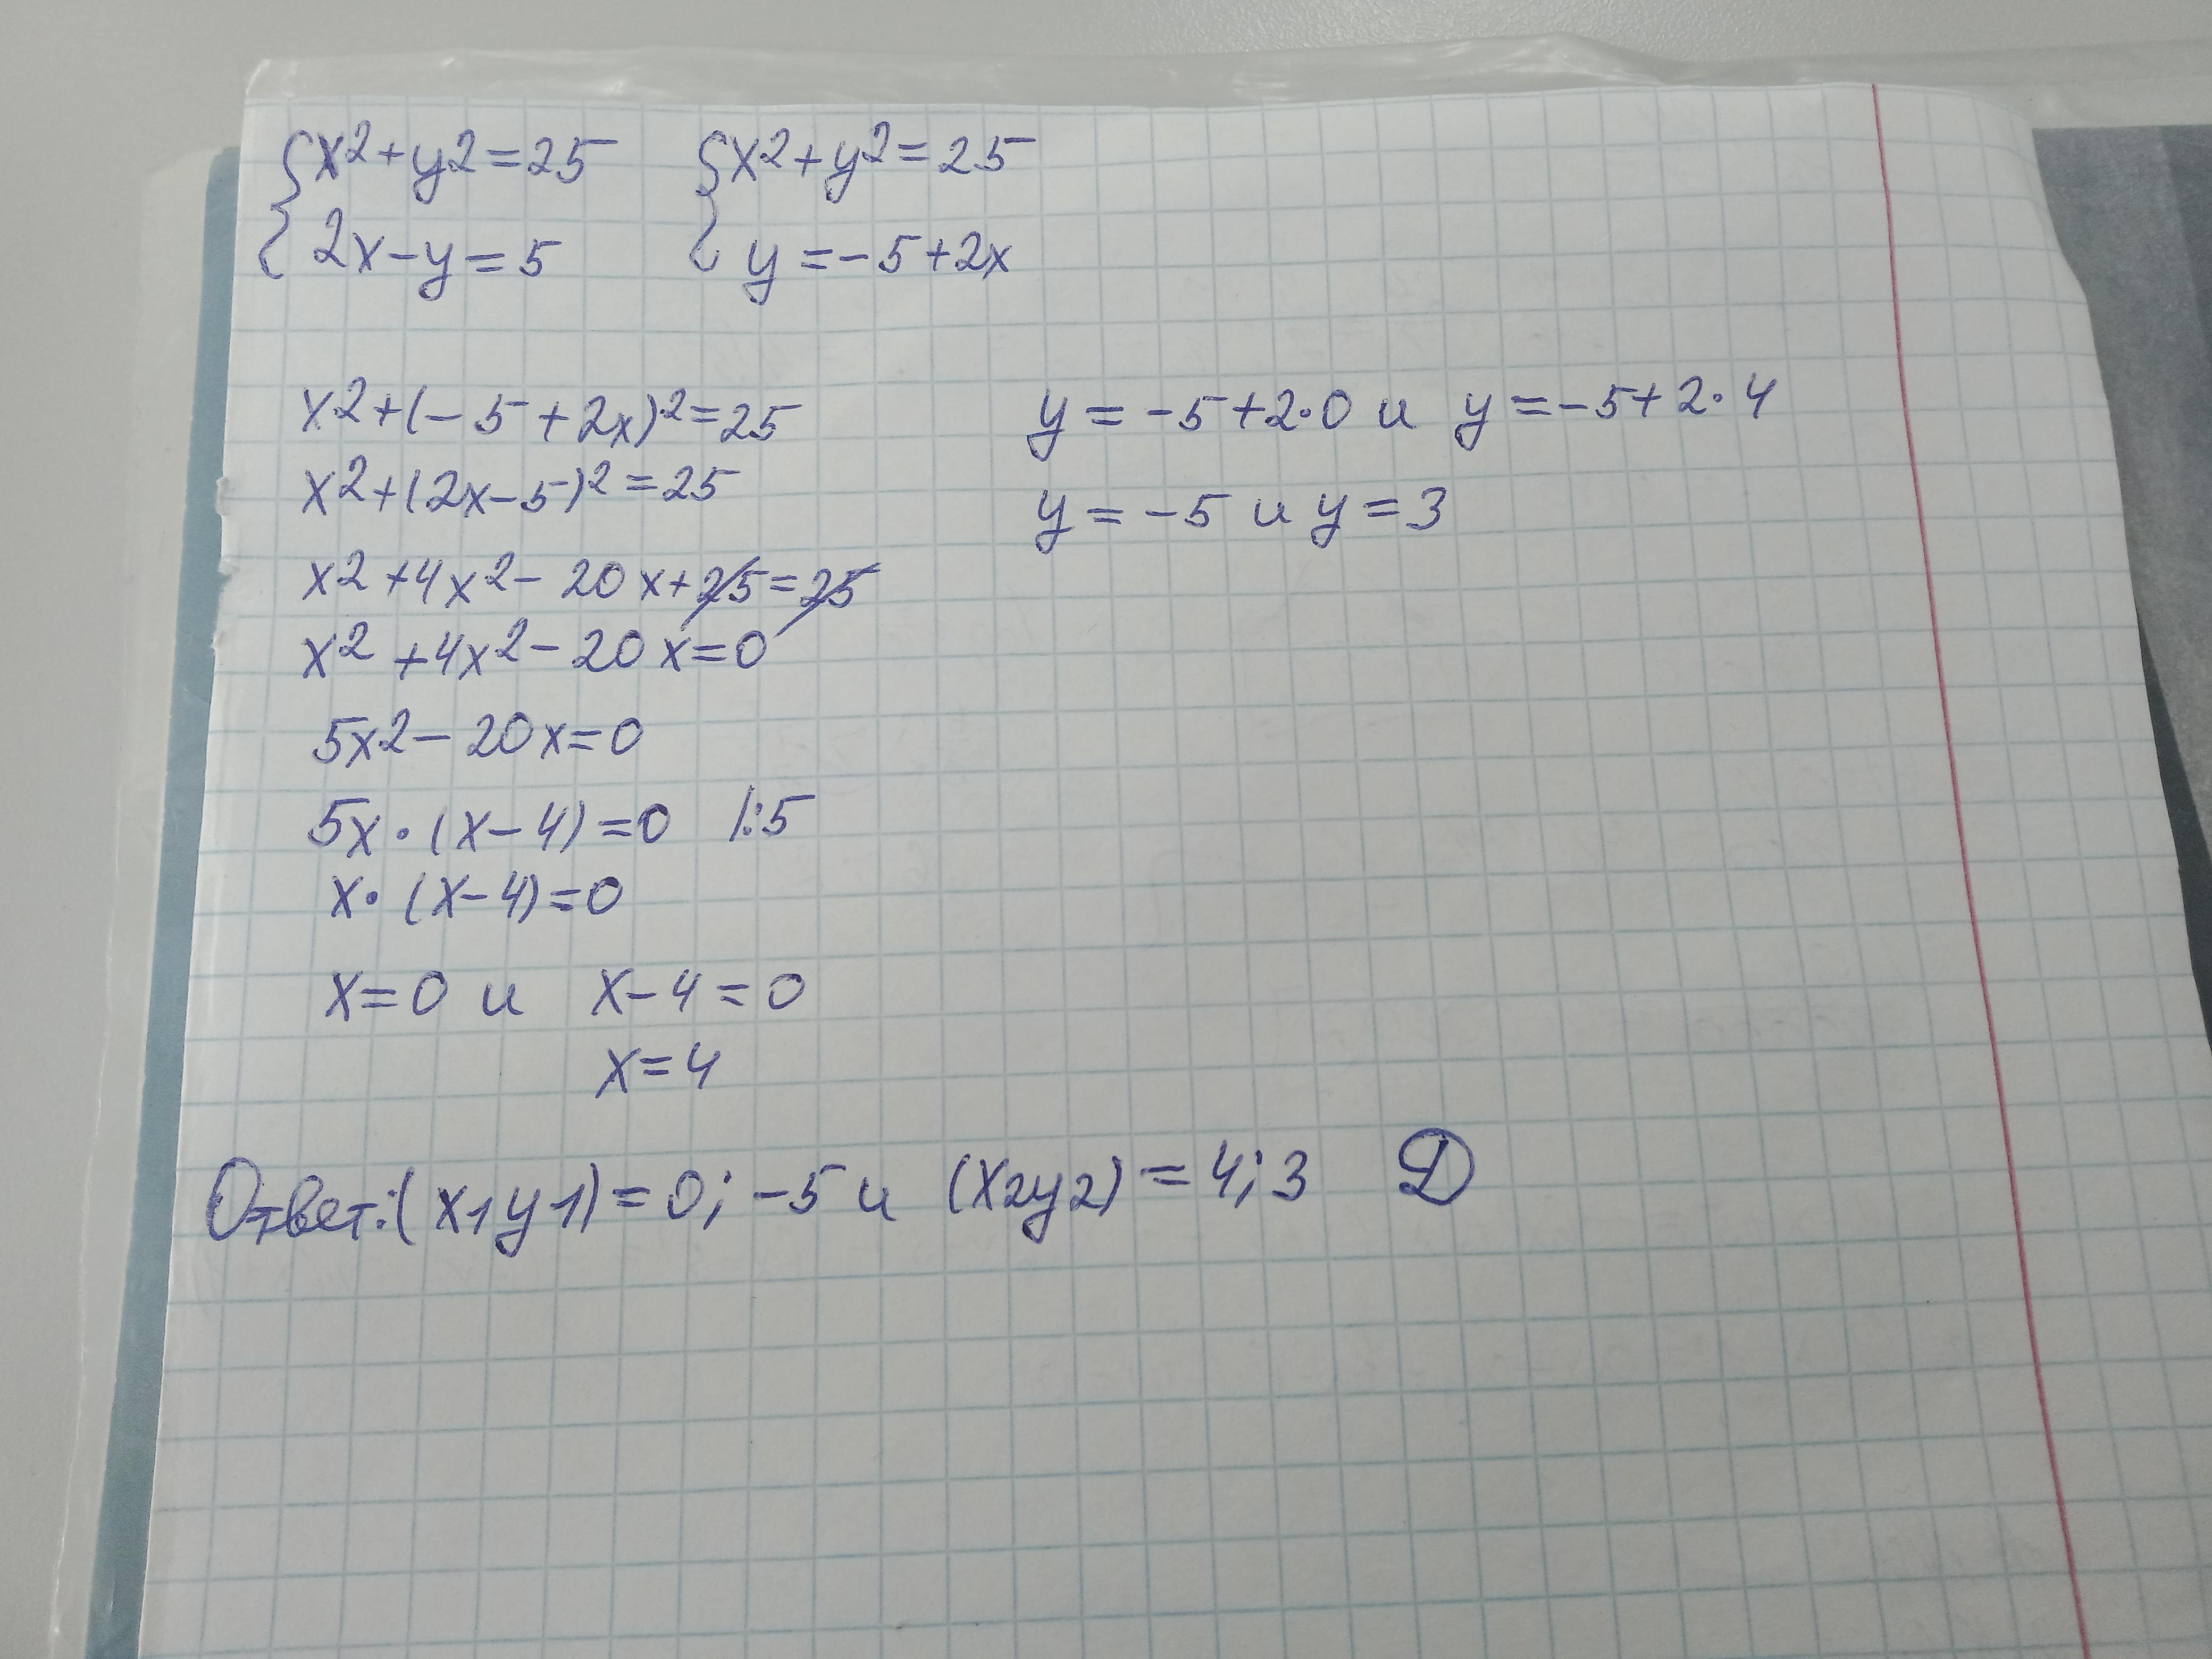 {x²+y²=25 {x²+y²=25
{2x-y=5 {y=-5+2x
x²+(-5+2x)²=25
x²+(2x-5)²=25
x²+4x²-20x+25=25
x²+4x²-20x=0
5x²-20x=0
5x·(x-4)=0 |:5
x·(x-4)=0
x=0 и x-4=0
x=4
y=-5+2·0 и y=-5+2·4
y=-5 и y=3
Ответ:(x₁y₁)=0;-5 и (x₂y₂)=4;3 D